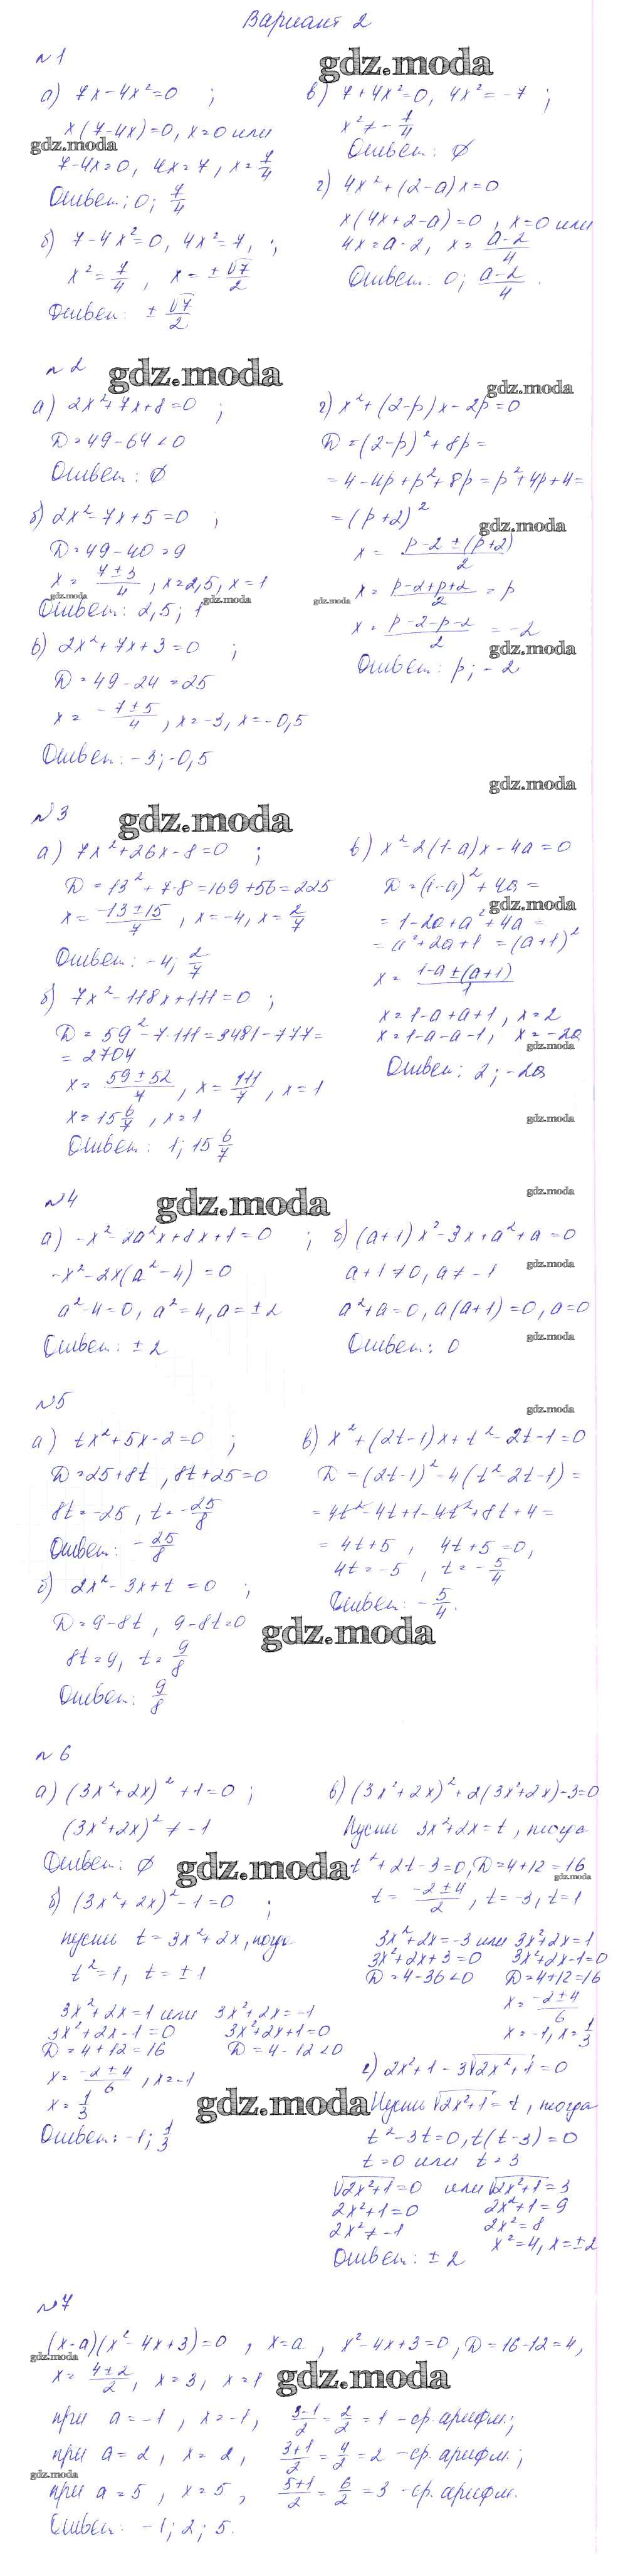 Вариант 2
№1
gdz.moda
а) 7x-4x²=0 ;
x(7-4x)=0, x=0 или
gdz.moda
7-4x=0, 4x=7, x=7/4
Ответ: 0; 7/4
б) 7-4x²=0, 4x²=7, ;
x²=7/4, x=±√7/2
Ответ: ±√7/2
в) 7+4x²=0, 4x²=-7 ;
x²≠-7/4
Ответ: ∅
г) 4x²+(2-a)x=0
x(4x+2-a)=0, x=0 или
4x=a-2, x=(a-2)/4
Ответ: 0; (a-2)/4.
№2
gdz.moda
а) 2x²+7x+8=0 ;
D=49-64<0
Ответ: ∅
б) 2x²-7x+5=0 ;
D=49-40=9
x=(7±3)/4, x=2,5, x=1
gdz.moda
gdz.moda
Ответ: 2,5; 1
в) 2x²+7x+3=0 ;
D=49-24=25
x=(-7±5)/4, x=-3, x=-0,5
Ответ: -3; -0,5
gdz.moda
г) x²+(2-p)x-2p=0
D=(2-p)²+8p=
=4-4p+p²+8p=p²+4p+4=
=(p+2)²
gdz.moda
x=(p-2±(p+2))/2
x=(p-2+p+2)/2=p
gdz.moda
x=(p-2-p-2)/2=-2
gdz.moda
Ответ: p; -2
gdz.moda
№3
gdz.moda
а) 7x²+26x-8=0 ;
D=13²+7·8=169+56=225
x=(-13±15)/7, x=-4, x=2/7
Ответ: -4; 2/7
б) 7x²-118x+111=0 ;
D=59²-7·111=3481-777=
=2704
x=(59±52)/7, x=111/7, x=1
x=15 6/7, x=1
Ответ: 1; 15 6/7
в) x²-2(1-a)x-4a=0
D=(1-a)²+4a=
gdz.moda
=1-2a+a²+4a=
=a²+2a+1=(a+1)²
x=(1-a±(a+1))/1
x=1-a+a+1, x=2
x=1-a-a-1, x=-2a
gdz.moda
Ответ: 2; -2a
gdz.moda
№4
gdz.moda
gdz.moda
а) -x²-2a²x+8x+1=0 ;
-x²-2x(a²-4)=0
a²-4=0, a²=4, a=±2
Ответ: ±2
б) (a+1)x²-3x+a²+a=0
gdz.moda
a+1≠0, a≠-1
a²+a=0, a(a+1)=0, a=0
gdz.moda
Ответ: 0
№5
gdz.moda
а) tx²+5x-2=0 ;
D=25+8t, 8t+25=0
8t=-25, t=-25/8
Ответ: -25/8
б) 2x²-3x+t=0 ;
D=9-8t, 9-8t=0
8t=9, t=9/8
Ответ: 9/8
в) x²+(2t-1)x+t²-2t-1=0
D=(2t-1)²-4(t²-2t-1)=
=4t²-4t+1-4t²+8t+4=
=4t+5, 4t+5=0,
4t=-5, t=-5/4
Ответ: -5/4.
gdz.moda
№6
а) (3x²+2x)²+1=0 ;
(3x²+2x)²≠-1
Ответ: ∅
gdz.moda
б) (3x²+2x)²-1=0 ;
пусть t=3x²+2x, тогда
t²=1, t=±1
3x²+2x=1 или 3x²+2x=-1
3x²+2x-1=0 3x²+2x+1=0
D=4+12=16 D=4-12<0
x=(-2±4)/6, x=-1
x=1/3
gdz.moda
Ответ: -1; 1/3
в) (3x²+2x)²+2(3x²+2x)-3=0
Пусть 3x²+2x=t, тогда
t²+2t-3=0, D=4+12=16
gdz.moda
t=(-2±4)/2, t=-3, t=1
3x²+2x=-3 или 3x²+2x=1
3x²+2x+3=0 3x²+2x-1=0
D=4-36<0 D=4+12=16
x=(-2±4)/6
x=-1, x=1/3
г) 2x²+1-3√(2x²+1)=0
Пусть √(2x²+1)=t, тогда
t²-3t=0, t(t-3)=0
t=0 или t=3
√(2x²+1)=0 или √(2x²+1)=3
2x²+1=0 2x²+1=9
2x²≠-1 2x²=8
x²=4, x=±2
Ответ: ±2
№7
(x-a)(x²-4x+3)=0, x=a, x²-4x+3=0, D=16-12=4,
gdz.moda
x=(4±2)/2, x=3, x=1
gdz.moda
при a=-1, x=-1, (3-1)/2=2/2=1 -ср. арифм.;
при a=2, x=2, (3+1)/2=4/2=2 -ср. арифм.;
gdz.moda
при a=5, x=5, (5+1)/2=6/2=3 -ср. арифм.
Ответ: -1; 2; 5.